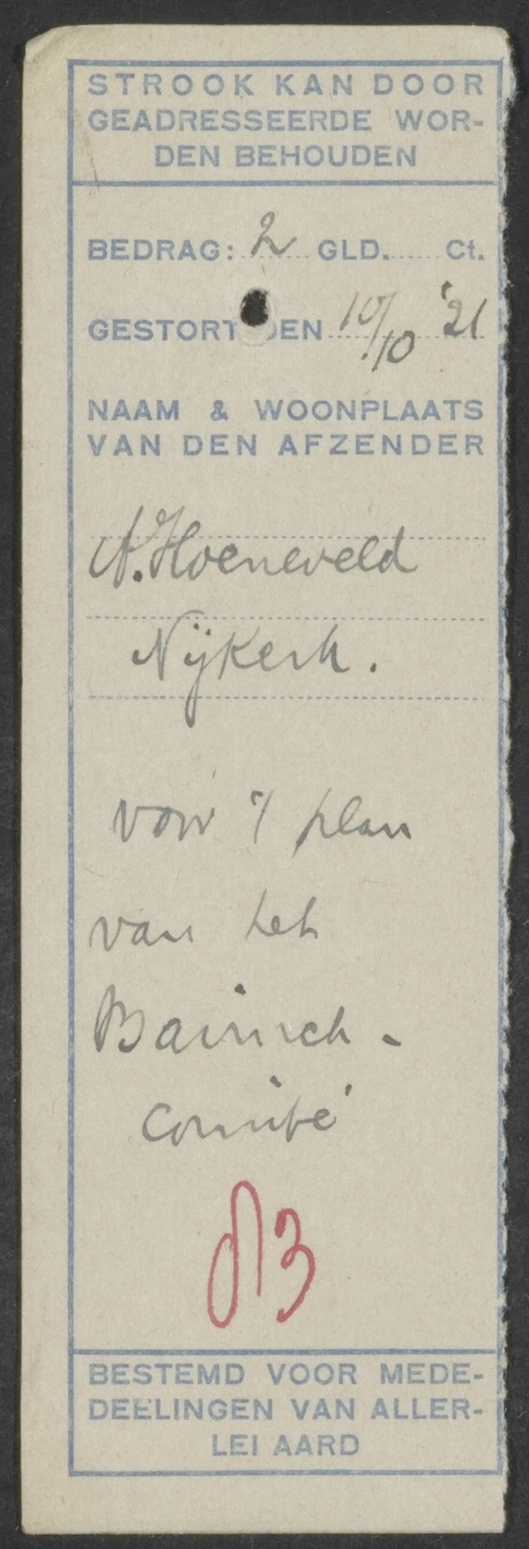 STROOK KAN DOOR
GEADRESSEERDE WOR-
DEN BEHOUDEN
BEDRAG: 2 GLD. Ct.
GESTORT DEN 10/10 '21
NAAM & WOONPLAATS
VAN DEN AFZENDER
A. Hoeneveld
Nijkerk.
voor 't plan
van het
-
comité
83
BESTEMD VOOR MEDE-
DEELINGEN VAN ALLER-
LEI AARD